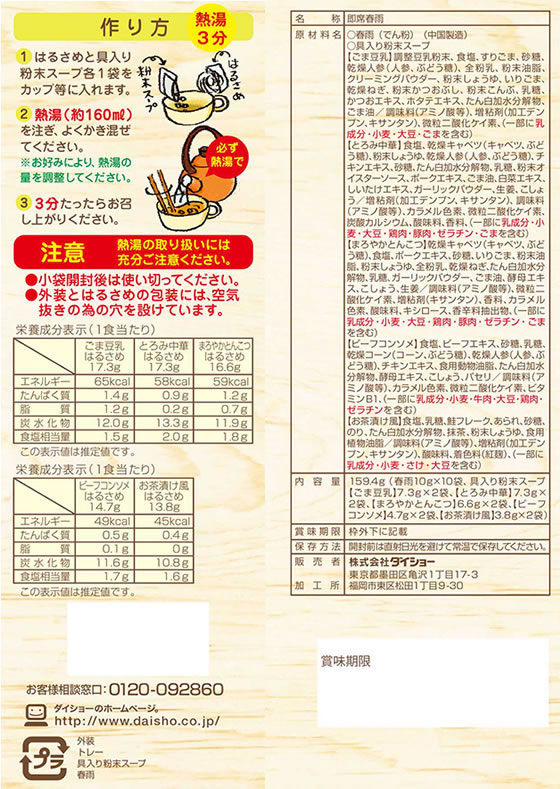 作り方 熱湯3分
1 はるさめと具入り
粉末スープ各1袋を
カップ等に入れます。
粉末スープ はるさめ
2 熱湯(約160㎖)
を注ぎ、よくかき混ぜ
てください。
※お好みにより、熱湯の
量を調整してください。
必ず
熱湯で
3 3分たったらお召
し上がりください。
注意 熱湯の取り扱いには
充分ご注意ください。
●小袋開封後は使い切ってください。
●外装とはるさめの包装には、空気
抜きの為の穴を設けています。
栄養成分表示(1食当たり)
ごま豆乳 はるさめ 17.3g とろみ中華 はるさめ 17.3g まろやかとんこつ はるさめ 16.6g
エネルギー 65kcal 58kcal 59kcal
たんぱく質 1.4g 0.9g 1.2g
脂質 1.2g 0.2g 0.7g
炭水化物 12.0g 13.3g 11.9g
食塩相当量 1.5g 2.0g 1.8g
この表示値は推定値です。
栄養成分表示(1食当たり)
ビーフコンソメ はるさめ 14.7g お茶漬け風 はるさめ 13.8g
エネルギー 49kcal 45kcal
たんぱく質 0.5g 0.4g
脂質 0.1g 0g
炭水化物 11.6g 10.8g
食塩相当量 1.7g 1.6g
この表示値は推定値です。
お客様相談窓口:0120-092860
ダイショーのホームページ。
http://www.daisho.co.jp/
プラ
外装
トレー
具入り粉末スープ
春雨
名称 即席春雨
原材料名 ○春雨(でん粉)(中国製造)
○具入り粉末スープ
【ごま豆乳】調整豆乳粉末、食塩、すりごま、砂糖、
乾燥人参(人参、ぶどう糖)、全粉乳、粉末油脂、
クリーミングパウダー、粉末しょうゆ、いりごま、
乾燥ねぎ、粉末かつおぶし、粉末こんぶ、乳糖、
かつおエキス、ホタテエキス、たん白加水分解物、
ごま油/調味料(アミノ酸等)、増粘剤(加工デン
プン、キサンタン)、微粒二酸化ケイ素、(一部に乳
成分・小麦・大豆・ごまを含む)
【とろみ中華】食塩、乾燥キャベツ(キャベツ、ぶど
う糖)、粉末しょうゆ、乾燥人参(人参、ぶどう糖)、チ
キンエキス、砂糖、たん白加水分解物、乳糖、粉末オ
イスターソース、ポークエキス、ごま油、白菜エキス、
しいたけエキス、ガーリックパウダー、生姜、こしょ
う/増粘剤(加工デンプン、キサンタン)、調味料
(アミノ酸等)、カラメル色素、微粒二酸化ケイ素、
炭酸カルシウム、酸味料、香料、(一部に乳成分・小
麦・大豆・鶏肉・豚肉・ゼラチン・ごまを含む)
【まろやかとんこつ】乾燥キャベツ(キャベツ、ぶど
う糖)、食塩、ポークエキス、砂糖、いりごま、粉末油
脂、粉末しょうゆ、全粉乳、乾燥ねぎ、たん白加水分
解物、乳糖、ガーリックパウダー、ごま油、酵母エキ
ス、こしょう、生姜/調味料(アミノ酸等)、微粒二
酸化ケイ素、増粘剤(キサンタン)、香料、カラメル
色素、酸味料、キシロース、香辛料抽出物、(一部に
乳成分・小麦・大豆・鶏肉・豚肉・ゼラチン・ごまを
含む)
【ビーフコンソメ】食塩、ビーフエキス、砂糖、乳糖、
乾燥コーン(コーン、ぶどう糖)、乾燥人参(人参、ぶ
どう糖)、チキンエキス、食用動物油脂、たん白加水
分解物、酵母エキス、こしょう、パセリ/調味料(ア
ミノ酸等)、カラメル色素、微粒二酸化ケイ素、ビタ
ミンB1、(一部に乳成分・小麦・牛肉・大豆・鶏肉・
ゼラチンを含む)
【お茶漬け風】食塩、乳糖、鮭フレーク、あられ、砂糖、
のり、たん白加水分解物、抹茶、粉末しょうゆ、食用
植物油脂/調味料(アミノ酸等)、増粘剤(加工デン
プン、キサンタン)、酸味料、着色料(紅麹)、(一部に
乳成分・小麦・さけ・大豆を含む)
内容量 159.4g(春雨10g×10袋、具入り粉末スープ
【ごま豆乳】7.3g×2袋、【とろみ中華】7.3g×
2袋、【まろやかとんこつ】6.6g×2袋、【ビーフ
コンソメ】4.7g×2袋、【お茶漬け風】3.8g×2袋)
賞味期限 枠外下に記載
保存方法 開封前は直射日光を避けて常温で保存してください。
販売者 株式会社ダイショー
東京都墨田区亀沢1丁目17-3
加工所 福岡市東区松田1丁目9-30
賞味期限